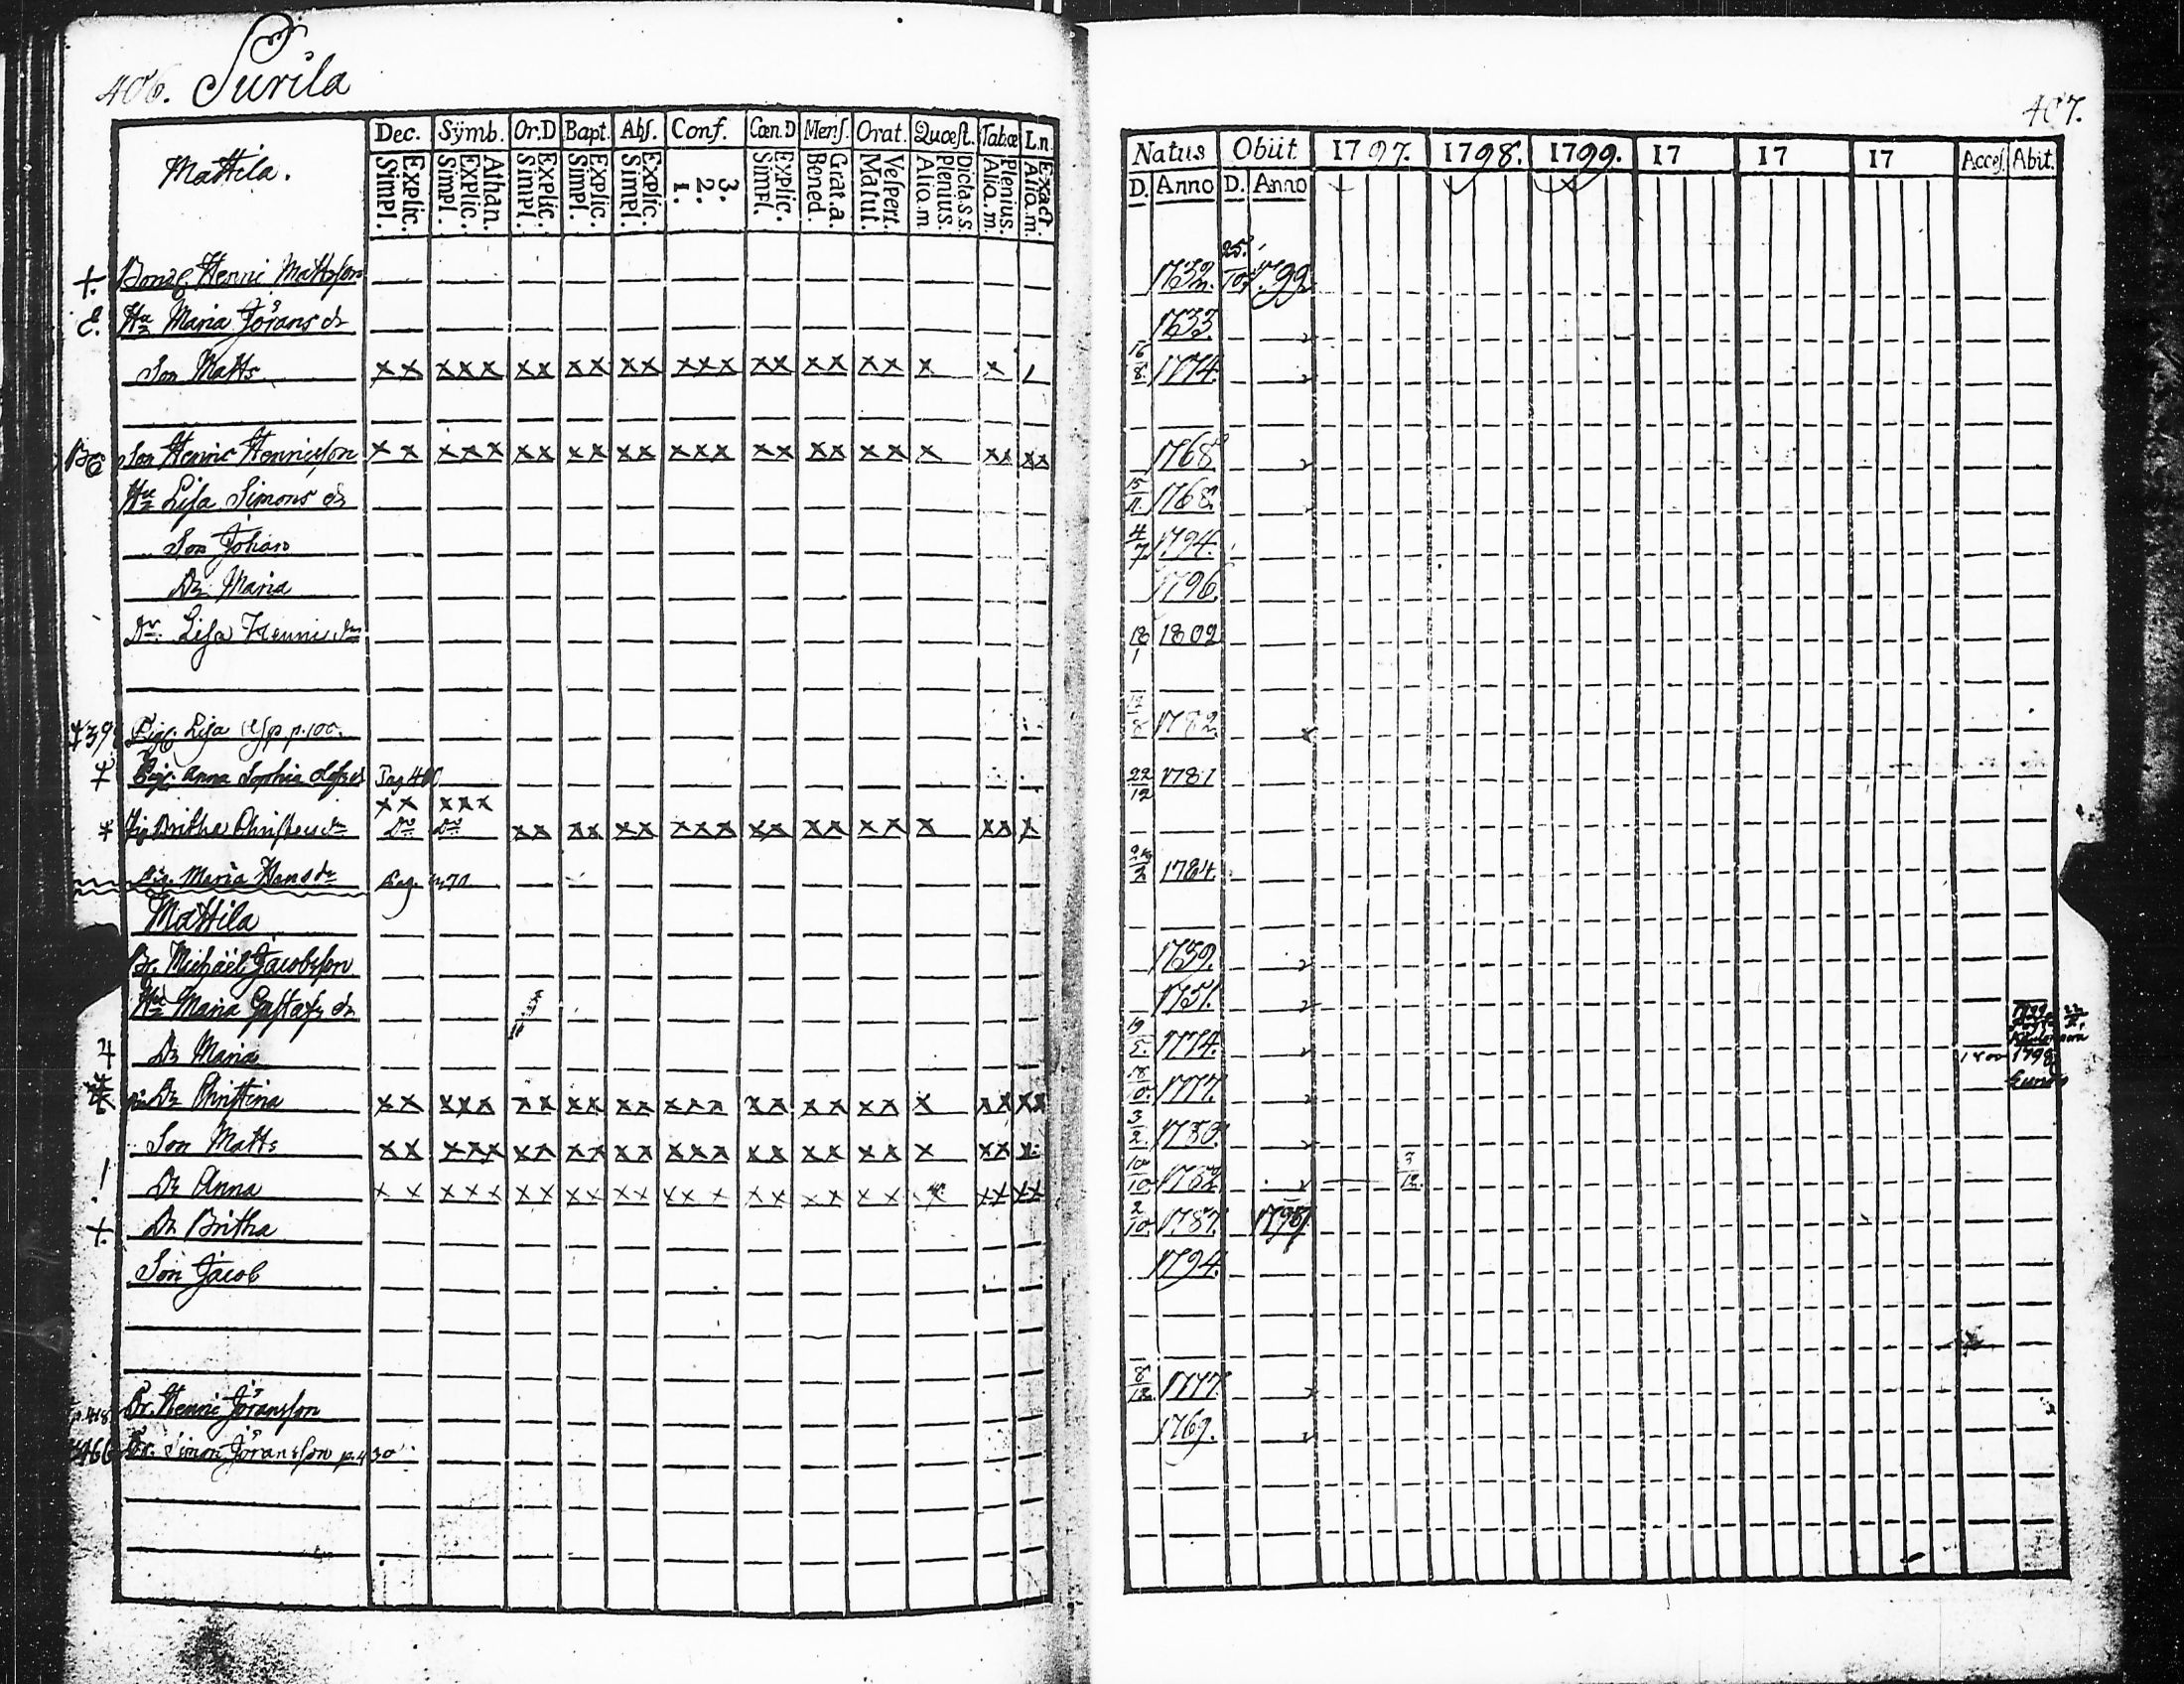 406. Surila
Mattila.
Dec. Sÿmb. Or.D Bapt. Abſ. Conf. Cœn.D Menſ. Orat. Quœſt. Tab.œ L.n.
Explic. Simpl. Athan. Explic. Simpl. Explic. Simpl. Explic. Simpl. Explic. Simpl. 3. 2. 1. Explic. Simpl. Grat.a. Bened. Veſpert. Matut. Dicta.s.s. Plenius. Aliq.m Plenius. Aliq.m Exact. Aliq.m
+. Bonde Henric Mattsſon
E. Hu Maria Jörans dr
Son Matts xx xxx xx xx xx xxx xx xx xx x x
Son Henric Henricsſon xx xxx xx xx xx xxx xx xx xx x xx xx
Hu Liſa Simons dr
Son Johan
Dr Maria
Dr. Liſa Henrics dr
Pig. Liſa p. 100.
Pig. Anna Sophia Pag 400
xx xxx
Pig Britha dr Dr Dr xx xx xx xxx xx xx xx x xx x
Pig. Maria Hans dr Pag.
Mattila
Br. Michaël Jacobsſon
Hu Maria Gustafs dr
Dr Maria
Dr Christina xx xxx xx xx xx xxx xx xx xx x xx xx
Son Matts xx xxx xx xx xx xxx xx xx xx x xx x
Dr Anna xx xxx xx xx xx xxx xx xx xx xx xx
+. Dr Britha
Son Jacob
p. 418 Dr. Henric Jöransſon
Dr. Simon Jöransſon p. 430
407.
Natus Obiit 1797. 1798. 1799. 17 17 17 Acceſ. Abit.
D. Anno D. Anno
1732. 25/10 1799
1733
16/8 1774.
1768
15/11. 1768.
4/7 1794.
1796.
18/1 1802
1782
22/12 1781
1784.
1739.
1751.
19/5. 1774. 1800 1798
18/ 1777.
3/2. 1780.
10/10 1782 3/12
2/10. 1787. 1797
1794.
8/12. 1777
1769.